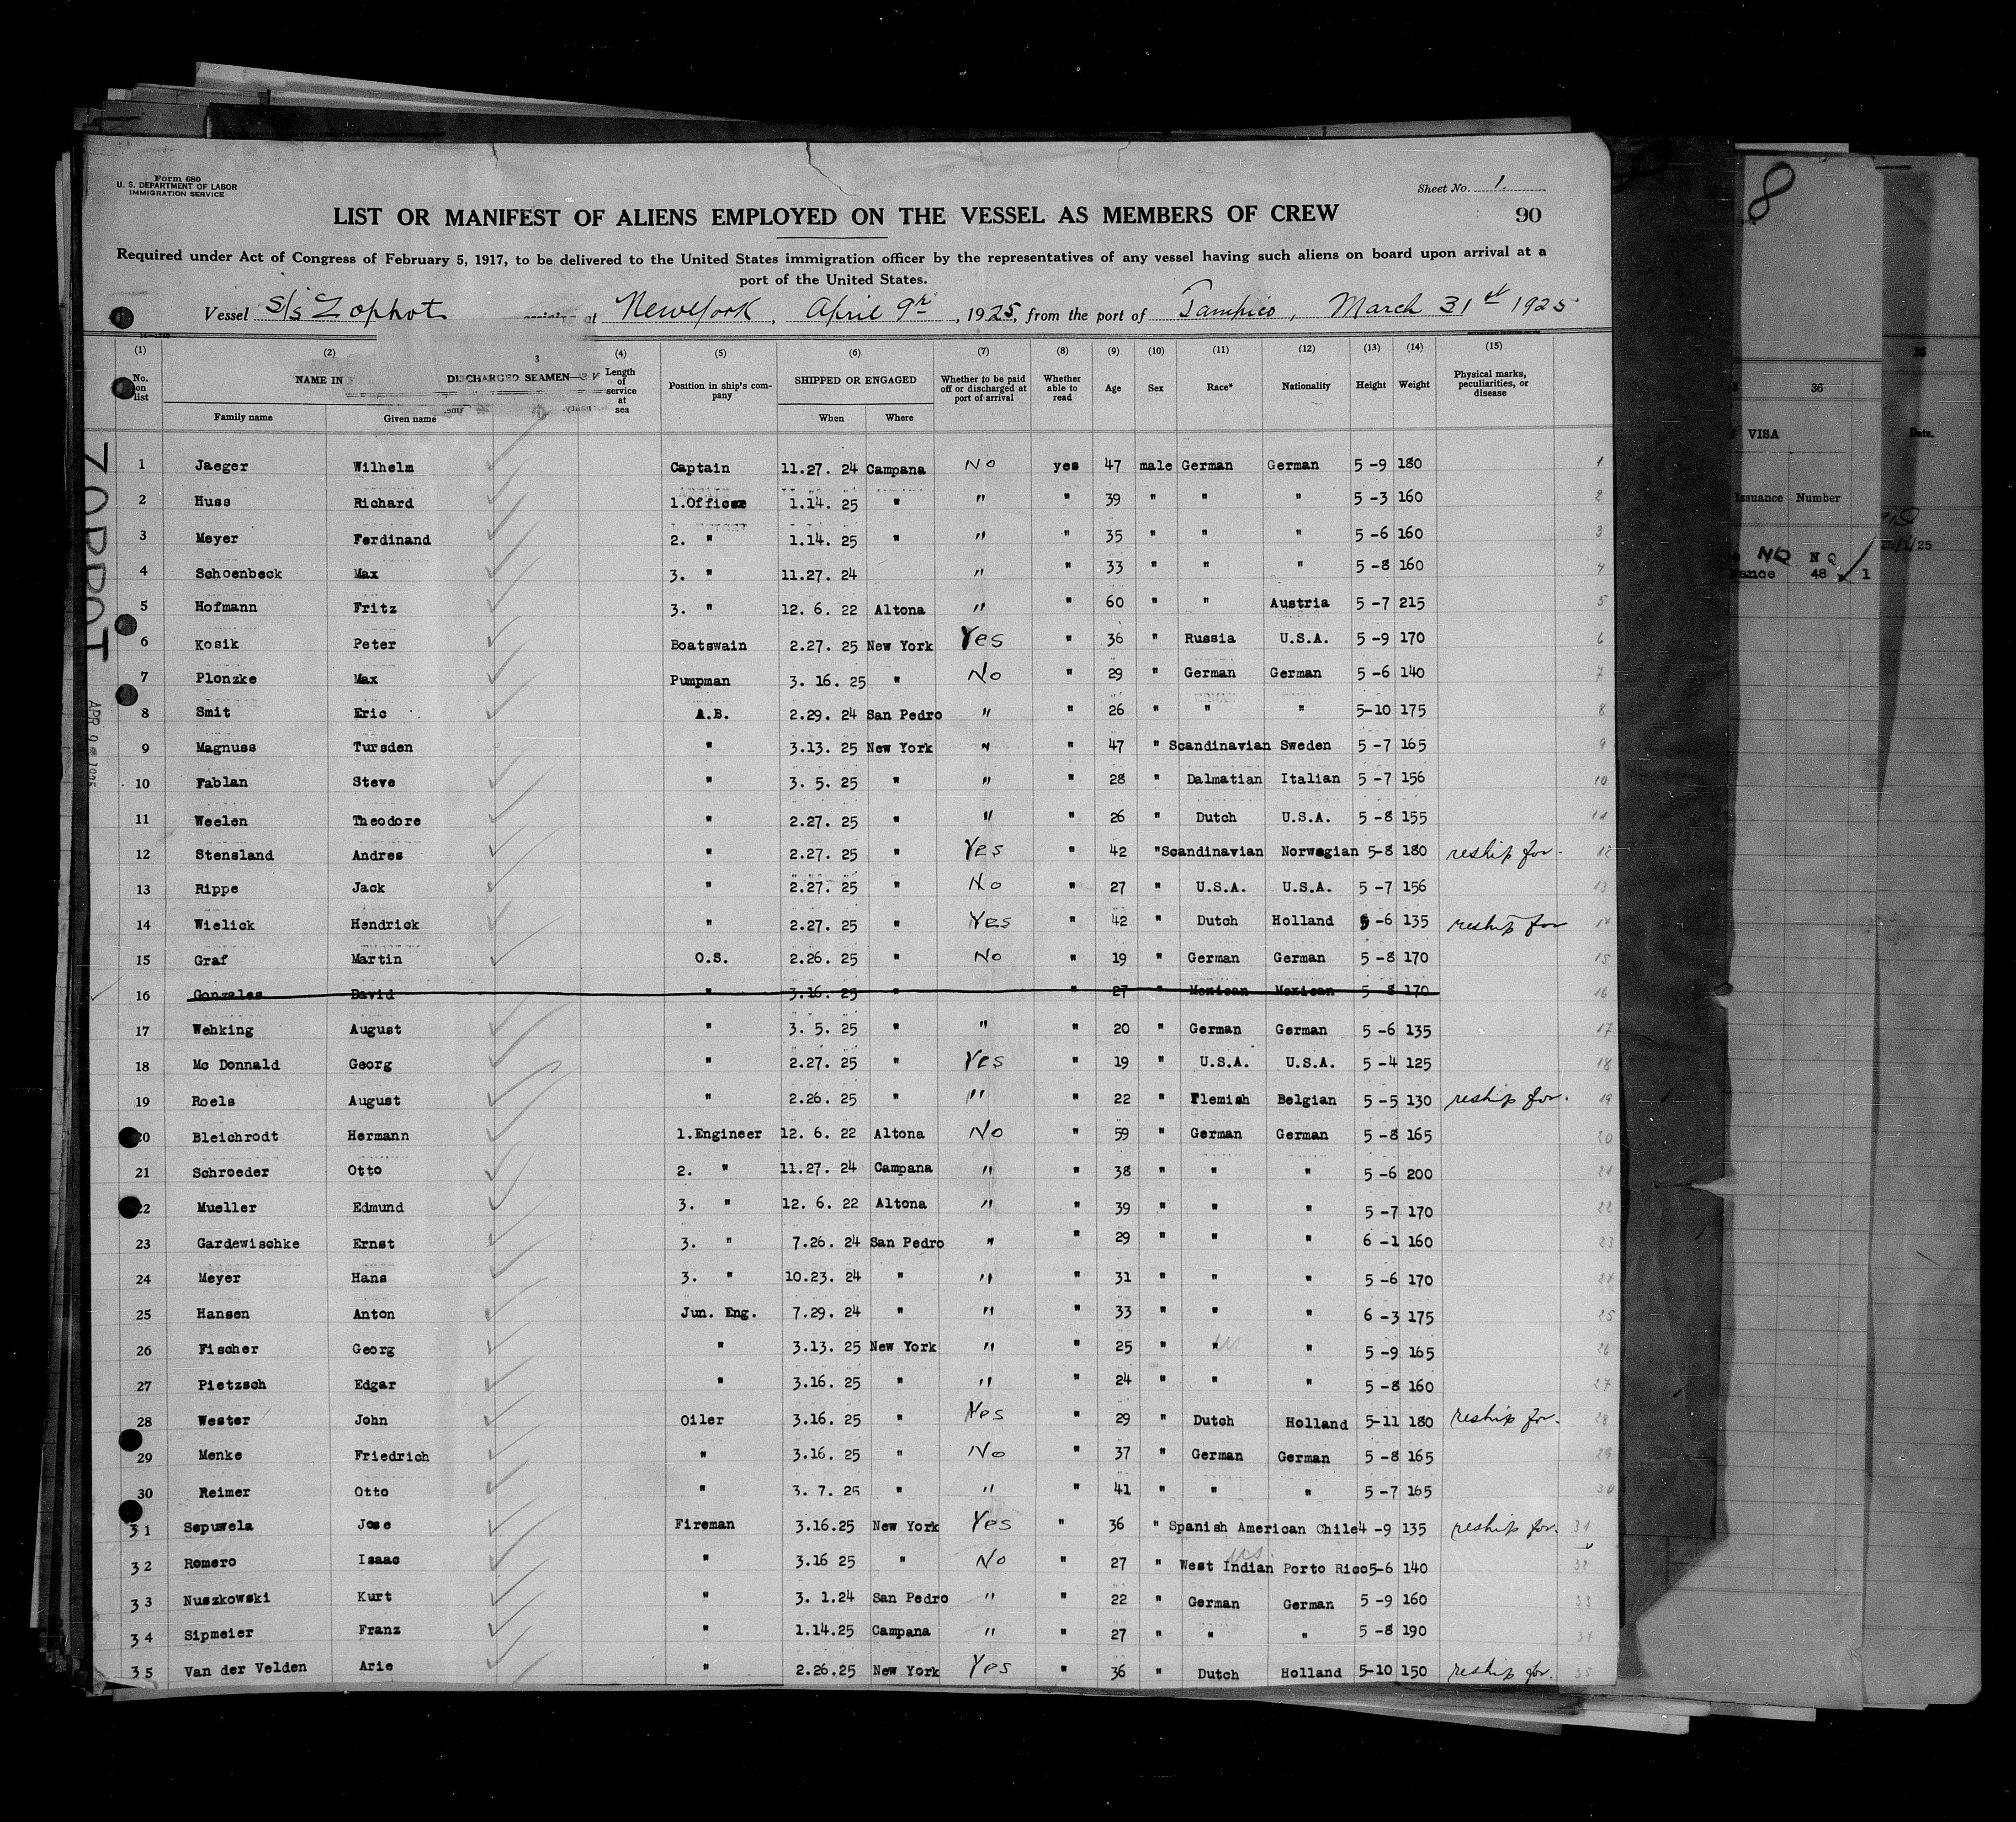 Form 680
U. S. DEPARTMENT OF LABOR
IMMIGRATION SERVICE
Sheet No. 1.
LIST OR MANIFEST OF ALIENS EMPLOYED ON THE VESSEL AS MEMBERS OF CREW
90
8
Required under Act of Congress of February 5, 1917, to be delivered to the United States immigration officer by the representatives of any vessel having such aliens on board upon arrival at a
port of the United States.
Vessel S/S Zoppot at New York, April 9th, 1925, from the port of Tampico, March 31st 1925
(1) (2) 3 (4) (5) (6) (7) (8) (9) (10) (11) (12) (13) (14) (15)
No. on list NAME IN DISCHARGED SEAMEN Length of service at sea Position in ship's company SHIPPED OR ENGAGED Whether to be paid off or discharged at port of arrival Whether able to read Age Sex Race* Nationality Height Weight Physical marks, peculiarities, or disease
Family name Given name When Where
1 Jaeger Wilhelm Captain 11.27. 24 Campana No yes 47 male German German 5 -9 180 1
2 Huss Richard 1.Officer 1.14. 25 " " " 39 " " " 5 -3 160 2
3 Meyer Ferdinand 2. " 1.14. 25 " " " 35 " " " 5 -6 160 3
4 Schoenbeck Max 3. " 11.27. 24 " " 33 " " " 5 -8 160 4
5 Hofmann Fritz 3. " 12. 6. 22 Altona " " 60 " " Austria 5 -7 215 5
6 Kosik Peter Boatswain 2.27. 25 New York Yes " 36 " Russia U.S.A. 5 -9 170 6
7 Plonzke Max Pumpman 3. 16. 25 " No " 29 " German German 5 -6 140 7
8 Smit Eric A.B. 2.29. 24 San Pedro " " 26 " " " 5-10 175 8
9 Magnuss Tursden " 3.13. 25 New York " " 47 " Scandinavian Sweden 5 -7 165 9
10 Fablan Steve " 3. 5. 25 " " " 28 " Dalmatian Italian 5 -7 156 10
11 Weelen Theodore " 2.27. 25 " " " 26 " Dutch U.S.A. 5 -8 155 11
12 Stensland Andres " 2.27. 25 " Yes " 42 " Scandinavian Norwegian 5-8 180 reship for. 12
13 Rippe Jack " 2.27. 25 " No " 27 " U.S.A. U.S.A. 5 -7 156 13
14 Wielick Hendrick " 2.27. 25 " Yes " 42 " Dutch Holland 5 -6 135 reship for 14
15 Graf Martin O.S. 2.26. 25 " No " 19 " German German 5 -8 170 15
16 Gonzales David " 3.16. 25 " " 27 " Mexican Mexican 5 -8 170 16
17 Wehking August " 3. 5. 25 " " " 20 " German German 5 -6 135 17
18 Mc Donnald Georg " 2.27. 25 " Yes " 19 " U.S.A. U.S.A. 5 -4 125 18
19 Roels August " 2.26. 25 " " " 22 " Flemish Belgian 5 -5 130 reship for. 19
20 Bleichrodt Hermann 1.Engineer 12. 6. 22 Altona No " 59 " German German 5 -8 165 20
21 Schroeder Otto 2. " 11.27. 24 Campana " " 38 " " " 5 -6 200 21
22 Mueller Edmund 3. " 12. 6. 22 Altona " " 39 " " " 5 -7 170 22
23 Gardewischke Ernst 3. " 7.26. 24 San Pedro " " 29 " " " 6 -1 160 23
24 Meyer Hans 3. " 10.23. 24 " " " 31 " " " 5 -6 170 24
25 Hansen Anton Jun. Eng. 7.29. 24 " " " 33 " " " 6 -3 175 25
26 Fischer Georg " 3.13. 25 New York " " 25 " " " 5 -9 165 26
27 Pietzsch Edgar " 3.16. 25 " " " 24 " " " 5 -8 160 27
28 Wester John Oiler 3.16. 25 " Yes " 29 " Dutch Holland 5-11 180 reship for. 28
29 Menke Friedrich " 3.16. 25 " No " 37 " German German 5 -8 165 29
30 Reimer Otto " 3. 7. 25 " " " 41 " " " 5 -7 165 30
31 Sepuwela Jose Fireman 3.16.25 New York Yes " 36 " Spanish American Chile 4 -9 135 reship for. 31
32 Romero Isaac " 3.16 25 " No " 27 " West Indian Porto Rico 5-6 140 32
33 Nuszkowski Kurt " 3. 1.24 San Pedro " " 22 " German German 5 -9 160 33
34 Sipmeier Franz " 1.14.25 Campana " " 27 " " " 5 -8 190 34
35 Van der Velden Arie " 2.26.25 New York Yes " 36 " Dutch Holland 5-10 150 reship for. 35
ZOPPOT
APR 9 - 1925
36
VISA
Date.
Issuance Number
NQ N Q
48 1